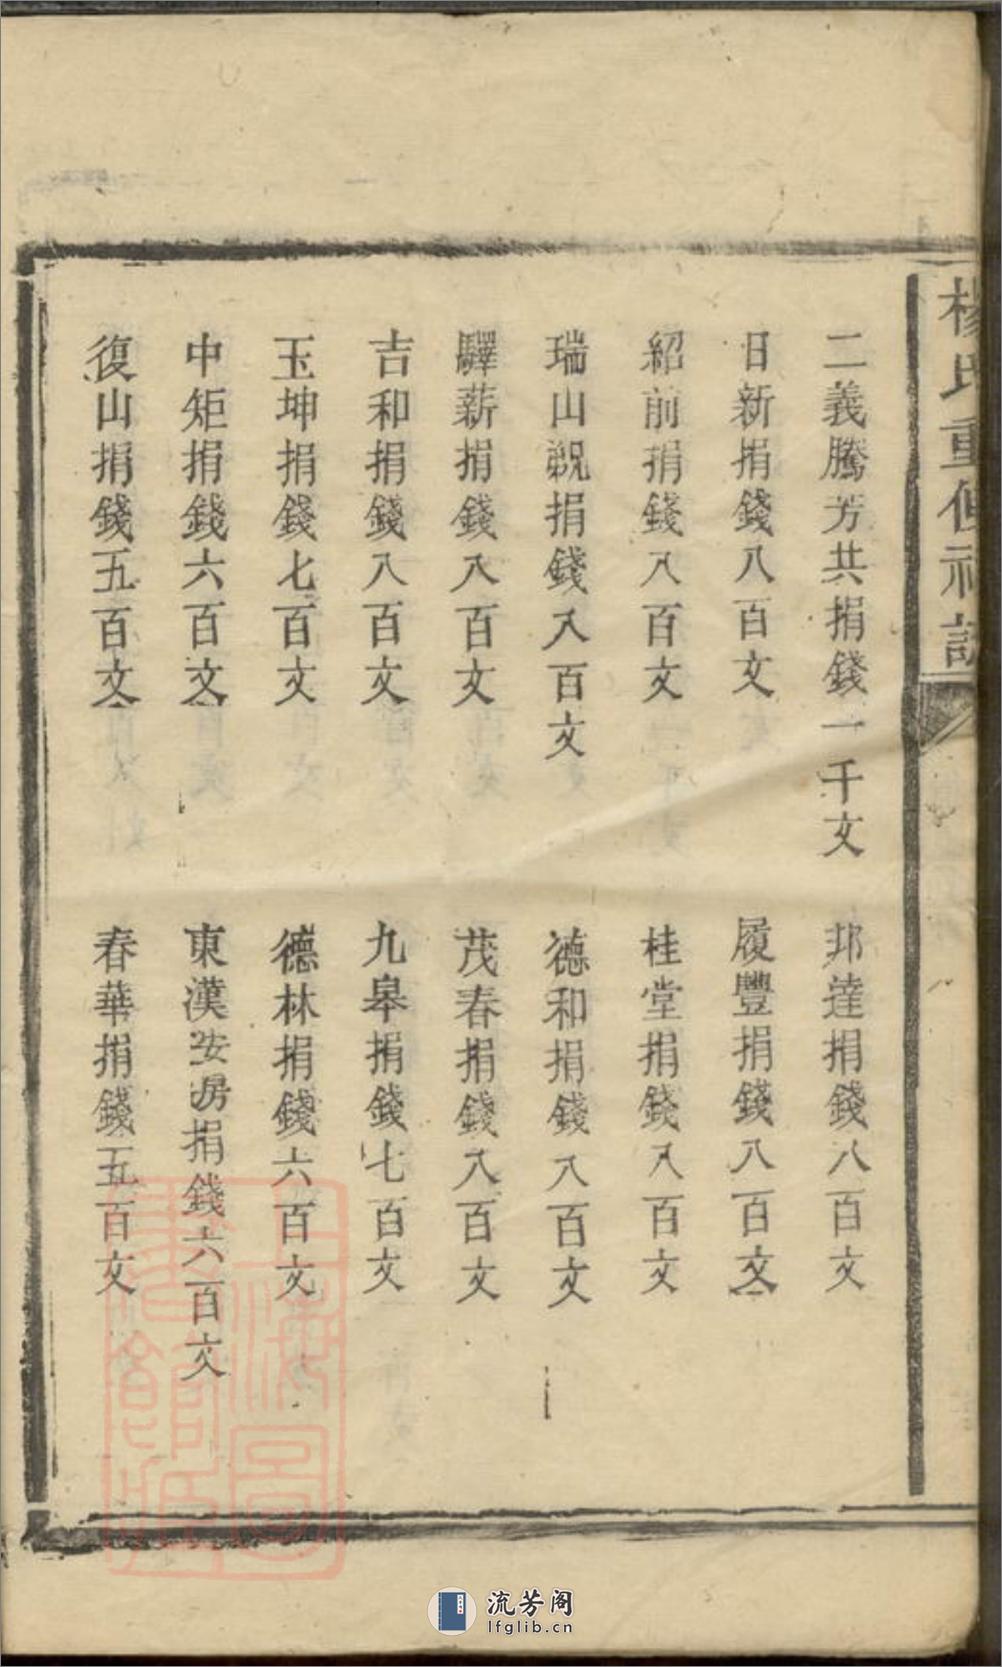 楊氏重修祠記
二義騰芳共捐錢一千文
邦達捐錢八百文
日新捐錢八百文
履豐捐錢八百文
紹前捐錢八百文
桂堂捐錢八百文
瑞山觀捐錢八百文
德和捐錢八百文
驛薪捐錢八百文
茂春捐錢八百文
吉和捐錢八百文
九皋捐錢七百文
玉坤捐錢七百文
德林捐錢六百文
中矩捐錢六百文
東漢安房捐錢六百文
復山捐錢五百文
春華捐錢五百文
上海圖書館藏
流芳阁
lfglib.cn